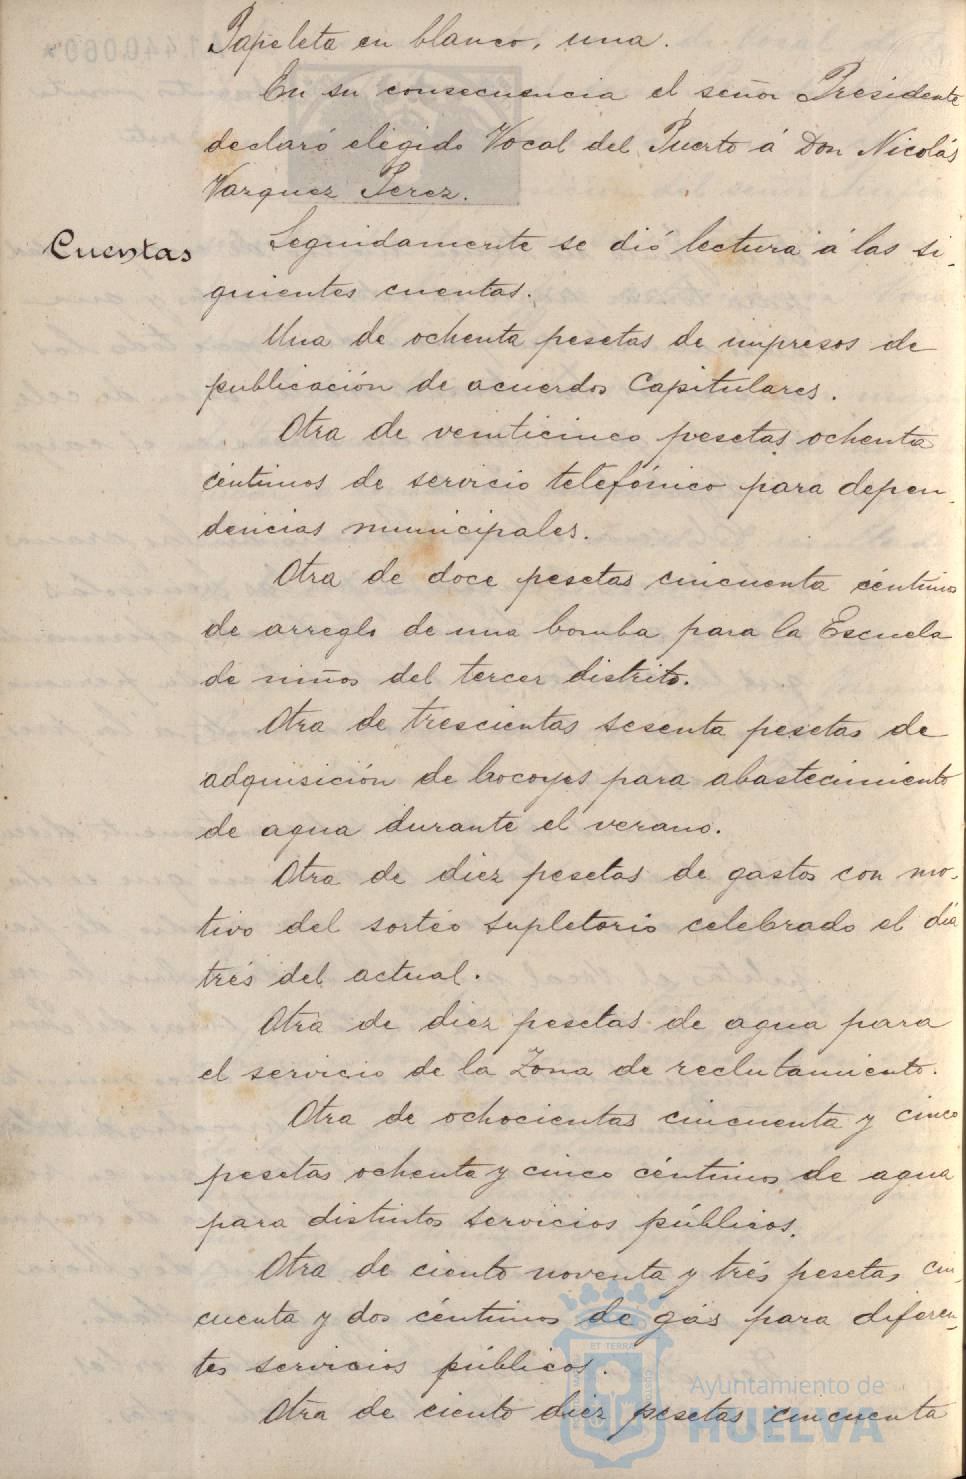 Papeleta en blanco, una.
En su consecuencia el señor Presidente
declaró elegido Vocal del Puerto á Don Nicolás
Vazquez Perez.
Cuentas
Seguidamente se dió lectura á las si-
guientes cuentas.
Una de ochenta pesetas de impresos de
publicación de acuerdos Capitulares.
Otra de veinticinco pesetas ochenta
céntimos de servicio telefónico para depen-
dencias municipales.
Otra de doce pesetas cincuenta céntimos
de arreglo de una bomba para la Escuela
de niños del tercer distrito.
Otra de trescientas sesenta pesetas de
adquisición de bocoyes para abastecimiento
de agua durante el verano.
Otra de diez pesetas de gastos con mo-
tivo del sorteo supletorio celebrado el día
trés del actual.
Otra de diez pesetas de agua para
el servicio de la Zona de reclutamiento.
Otra de ochocientas cincuenta y cinco
pesetas ochenta y cinco céntimos de agua
para distintos servicios públicos.
Otra de ciento noventa y trés pesetas cin-
cuenta y dos céntimos de gás para diferen-
tes servicios públicos.
Otra de ciento diez pesetas cincuenta
ET TERRA
Ayuntamiento de
HUELVA